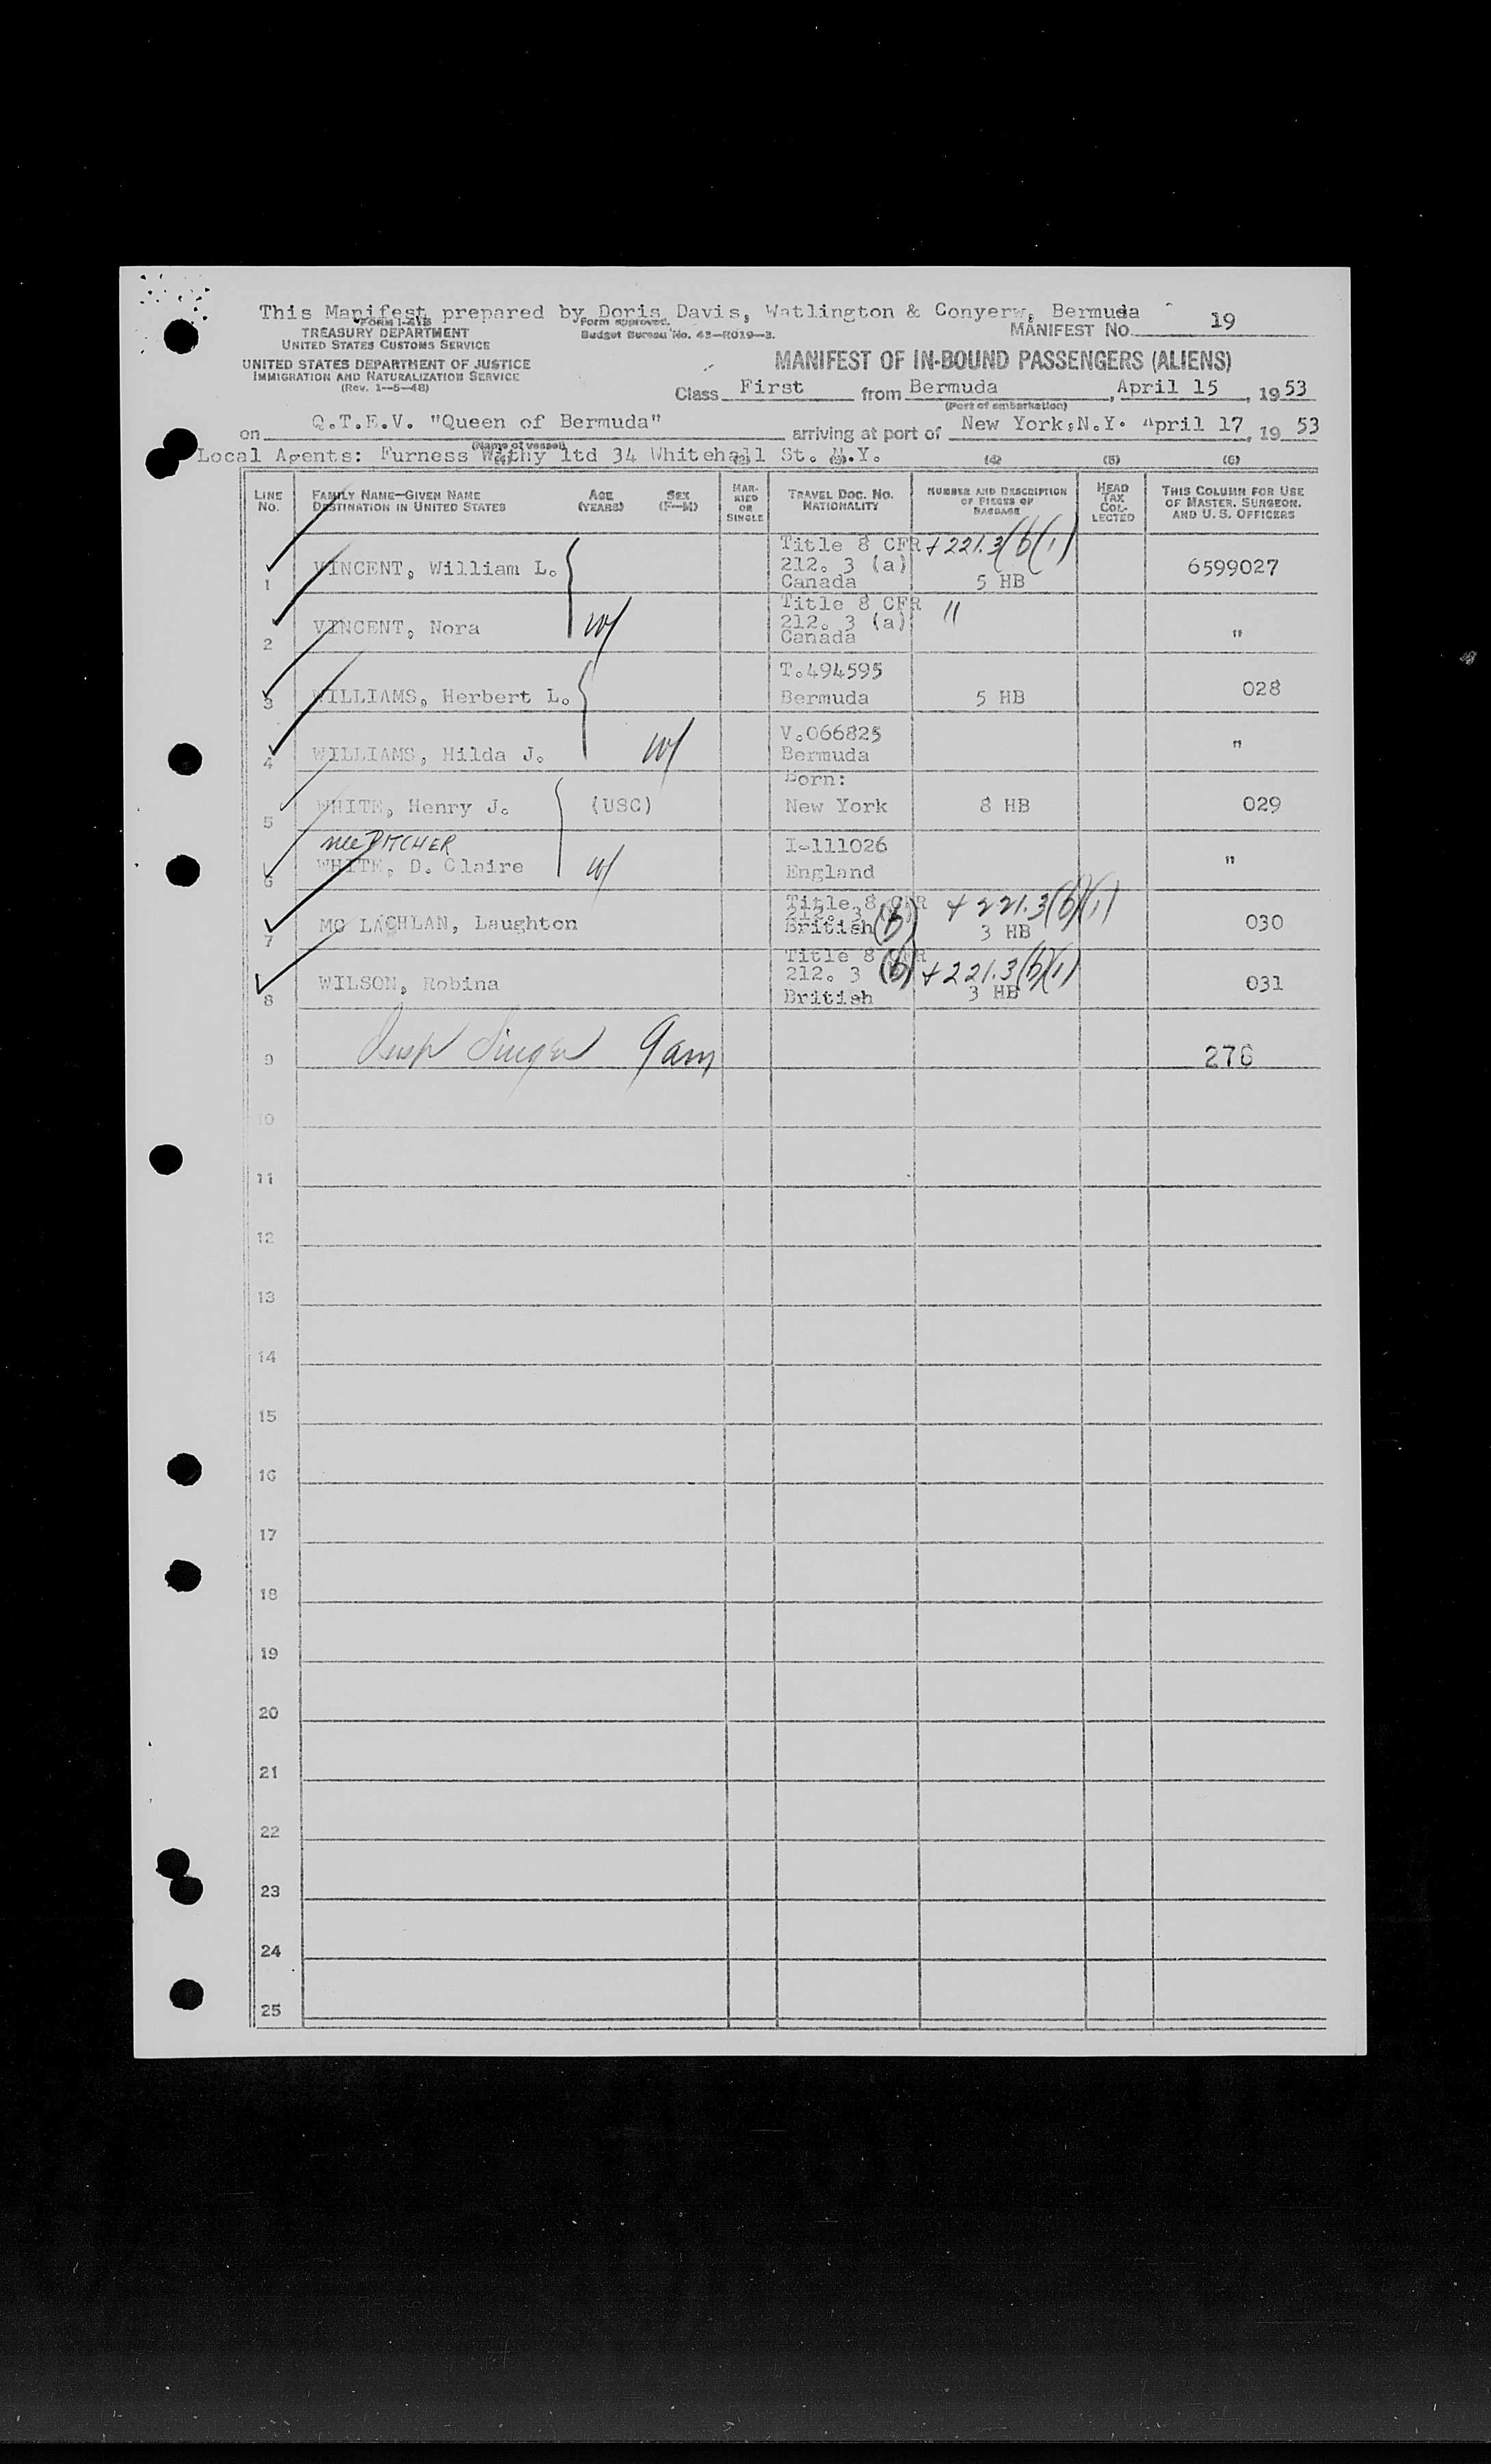 This Manifest prepared by Doris Davis, Watlington & Conyerw, Bermuda
FORM I-415
TREASURY DEPARTMENT
UNITED STATES CUSTOMS SERVICE
Form approved.
Budget Bureau No. 43-R019-3.
MANIFEST No. 19
UNITED STATES DEPARTMENT OF JUSTICE
IMMIGRATION AND NATURALIZATION SERVICE
(Rev. 1-5-48)
MANIFEST OF IN-BOUND PASSENGERS (ALIENS)
Class First from Bermuda, April 15, 1953
(Port of embarkation)
on Q.T.E.V. "Queen of Bermuda" arriving at port of New York,N.Y. April 17, 19 53
(Name of vessel)
Local Agents: Furness Withy ltd 34 Whitehall St. N.Y.
(1) (2) (3) (4) (5) (6)
LINE No. FAMILY NAME—GIVEN NAME DESTINATION IN UNITED STATES AGE (YEARS) SEX (F-M) MARRIED OR SINGLE TRAVEL DOC. NO. NATIONALITY NUMBER AND DESCRIPTION OF PIECES OF BAGGAGE HEAD TAX COLLECTED THIS COLUMN FOR USE OF MASTER, SURGEON, AND U. S. OFFICERS
Title 8 CFR + 221.3(b)(1)
1 VINCENT, William L. 212. 3 (a) 6599027
Canada 5 HB
Title 8 CFR "
2 VINCENT, Nora W/ 212. 3 (a) "
Canada
T.494595
3 WILLIAMS, Herbert L. Bermuda 5 HB 028
V.066825
4 WILLIAMS, Hilda J. W/ Bermuda "
Born:
5 WHITE, Henry J. (USC) New York 8 HB 029
nee PITCHER I-111026
6 WHITE, D. Claire W/ England "
Title 8 CFR + 221.3(b)(1)
7 MC LACHLAN, Laughton 212. 3 (b) 030
British 3 HB
Title 8 CFR
8 WILSON, Robina 212. 3 (b) + 221.3(b)(1) 031
British 3 HB
9 Insp Singer 9am 276
10
11
12
13
14
15
16
17
18
19
20
21
22
23
24
25